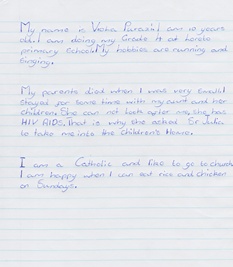 My name is Vioha Parazii I am 10 years
old. I am doing my Grade 4 at Loreto
primary School. My hobbies are running and
Singing.
My parents died when I was very small I
stayed for some time with my aunt and her
children. She can not look after me, she has
HIV AIDS. That is why she asked Sr Julia
to take me into the Children's Home.
I am a Catholic and like to go to church
I am happy when I can eat rice and chicken
on Sundays.